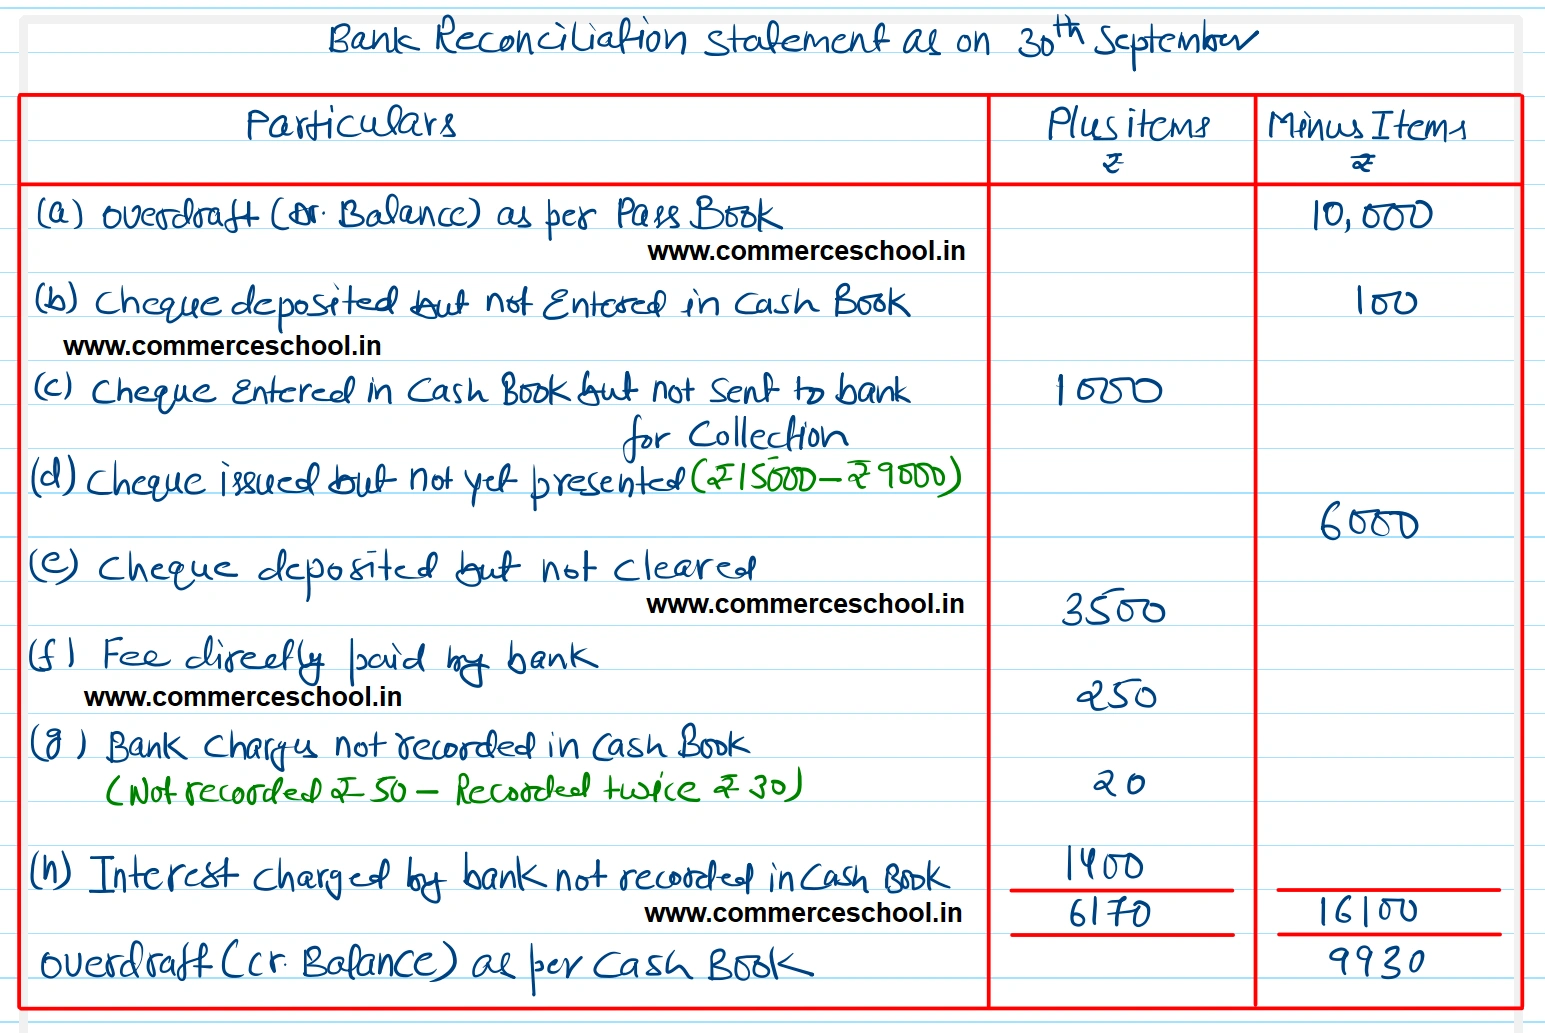 Bank Reconciliation Statement as on 30th September
Particulars Plus items Minus Items
₹ ₹
(a) overdraft (Dr. Balance) as per Pass Book 10,000
www.commerceschool.in
(b) Cheque deposited but not Entered in Cash Book 100
www.commerceschool.in
(c) Cheque Entered in Cash Book but not sent to bank 1000
for Collection
(d) Cheque issued but not yet presented (₹15000-₹9000)
6000
(e) Cheque deposited but not cleared
www.commerceschool.in 3500
(f) Fee directly paid by bank
www.commerceschool.in 250
(g) Bank Charges not recorded in Cash Book
(Not recorded ₹50 - Recorded twice ₹30) 20
(h) Interest charged by bank not recorded in Cash Book 1400
www.commerceschool.in 6170 16100
overdraft (Cr. Balance) as per Cash Book 9930